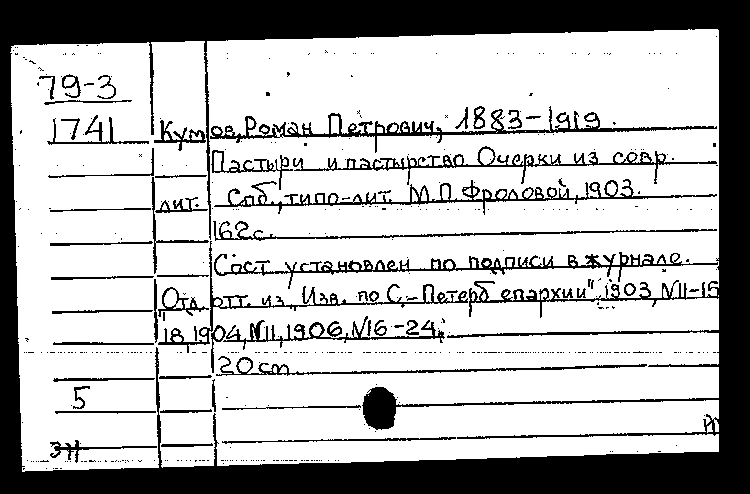 79-3
1741 Кумов, Роман Петрович, 1883-1919.
Пастыри и пастырство. Очерки из совр.
лит. Спб., типо-лит. М.П. Фроловой, 1903.
162 с.
Сост установлен по подписи в журнале.
"Отд. отт. из „Изв. по С.-Петерб епархии" 1903, №11-15
18, 1904, №11, 1906, №16-24.
20 cm.
5